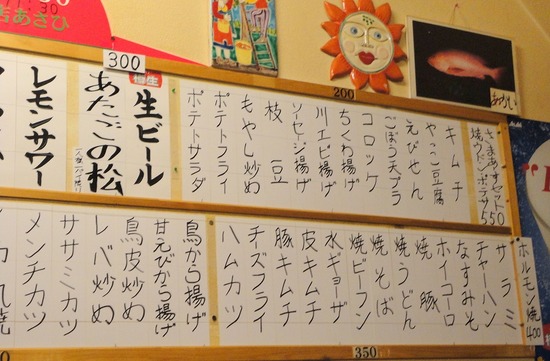 店あさひ
300
200
さまあずセット
焼ウドンポテサラ550
キムチ
やっこ豆腐
えびせん
ごぼう天プラ
コロッケ
ちくわ揚げ
川エビ揚げ
ソーセージ揚げ
枝豆
もやし炒め
ポテトフライ
ポテトサラダ
生ビール
あたごの松
レモンサワー
ホルモン焼400
サラミ
チャーハン
なすみそ
ホイコーロ
焼豚
焼うどん
焼そば
焼ビーフン
水ギョーザ
皮キムチ
豚キムチ
チーズフライ
ハムカツ
鳥から揚げ
甘えびから揚げ
鳥皮炒め
レバ炒め
ササミカツ
メンチカツ
350